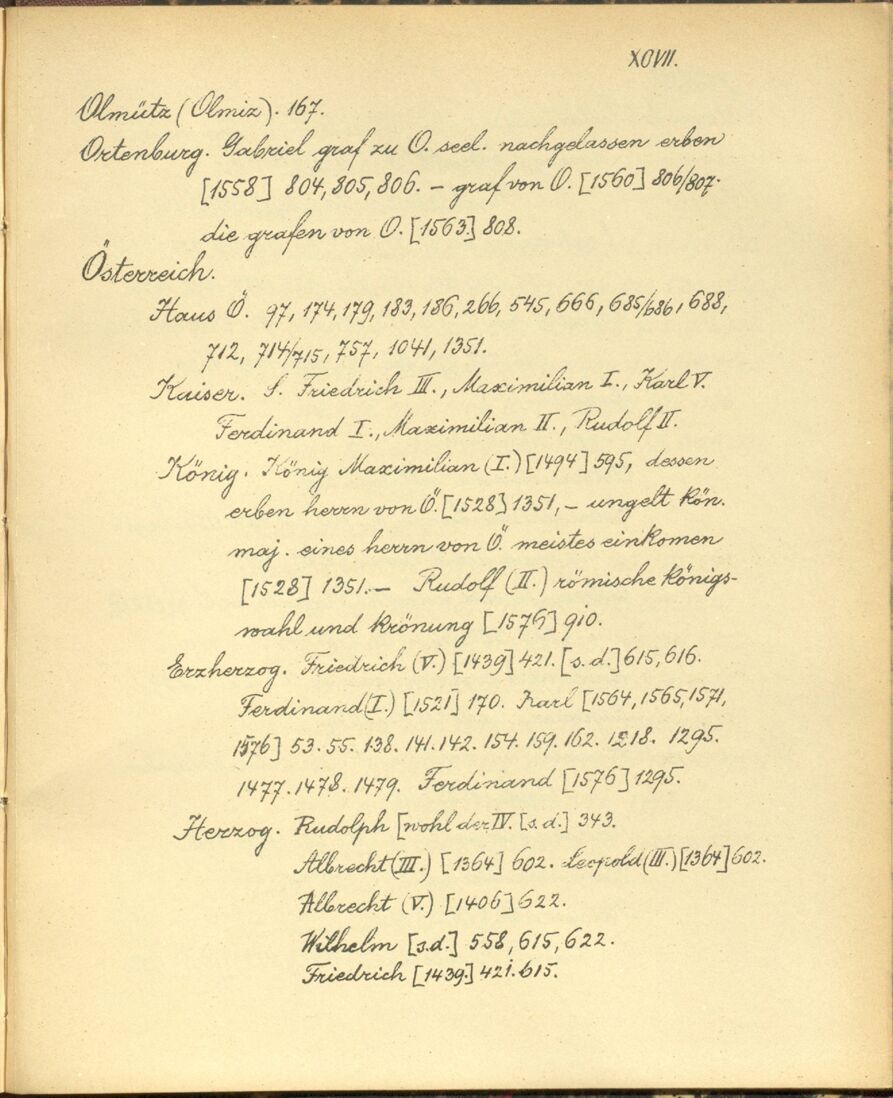 XCVII.
Olmütz (Olmiz). 167.
Ortenburg. Gabriel graf zu O. seel. nachgelassen erben
[1558] 804, 805, 806. – graf von O. [1560] 806/807.
die grafen von O. [1563] 808.
Österreich.
Haus Ö. 97, 174, 179, 183, 186, 266, 545, 666, 685/686, 688,
712, 714/715, 757, 1041, 1351.
Kaiser. S. Friedrich III., Maximilian I., Karl V.
Ferdinand I., Maximilian II., Rudolf II.
König. König Maximilian (I.) [1494] 595, dessen
erben herrn von Ö. [1528] 1351, – ungelt kön.
maj. eines herrn von Ö. meistes einkomen
[1528] 1351. – Rudolf (II.) römische königs-
wahl und krönung [1576] 910.
Erzherzog. Friedrich (V.) [1439] 421. [s. d.] 615, 616.
Ferdinand (I.) [1521] 170. Karl [1564, 1565, 1571,
1576] 53. 55. 138. 141. 142. 154. 159. 162. 1218. 1295.
1477. 1478. 1479. Ferdinand [1576] 1295.
Herzog. Rudolph [wohl der IV. [s. d.] 343.
Albrecht (III.) [1364] 602. Leopold (III.) [1364] 602.
Albrecht (V.) [1406] 622.
Wilhelm [s.d.] 558, 615, 622.
Friedrich [1439.] 421. 615.